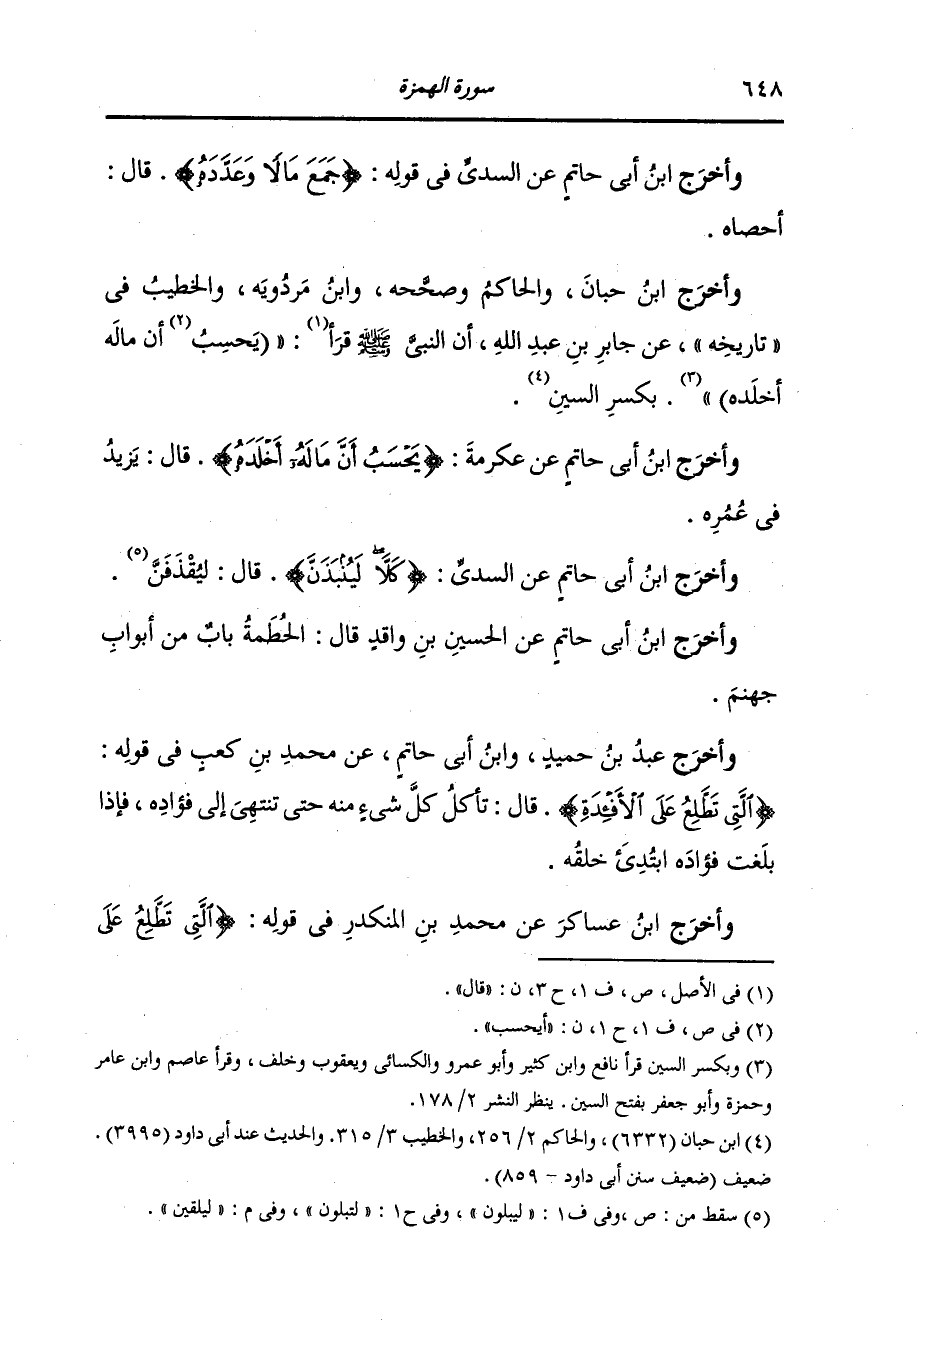 ٦٤٨ سورة الهمزة
وأخرَج ابنُ أبى حاتمٍ عن السدىِّ فى قولِه : ﴿جَمَعَ مَالًا وَعَدَّدَهُ﴾ . قال :
أحصاه .
وأخرَج ابنُ حبانَ ، والحاكمُ وصحَّحه ، وابنُ مَردُويَه ، والخطيبُ فى
« تاريخِه » ، عن جابرِ بنِ عبدِ اللهِ ، أن النبىَّ ﷺ قرَأ(١) : « (يَحسِبُ(٢) أن مالَه
أخلَده) »(٣) . بكسرِ السينِ(٤) .
وأخرَج ابنُ أبى حاتمٍ عن عكرمةَ : ﴿يَحْسَبُ أَنَّ مَالَهُۥٓ أَخْلَدَهُ﴾ . قال : يَزيدُ
فى عُمُرِه .
وأخرَج ابنُ أبى حاتمٍ عن السدىِّ : ﴿كَلَّاۖ لَيُنۢبَذَنَّ﴾ . قال : ليُقْذَفَنَّ(٥) .
وأخرَج ابنُ أبى حاتمٍ عن الحسينِ بنِ واقدٍ قال : الحُطَمةُ بابٌ من أبوابِ
جهنمَ .
وأخرَج عبدُ بنُ حميدٍ ، وابنُ أبى حاتمٍ ، عن محمدِ بنِ كعبٍ فى قولِه :
﴿ٱلَّتِى تَطَّلِعُ عَلَى ٱلْأَفْـِٔدَةِ﴾ . قال : تأكلُ كلَّ شىءٍ منه حتى تنتهِىَ إلى فؤادِه ، فإذا
بلَغت فؤادَه ابتُدِئَ خلقُه .
وأخرَج ابنُ عساكرَ عن محمدِ بنِ المنكدرِ فى قولِه : ﴿ٱلَّتِى تَطَّلِعُ عَلَى
(١) فى الأصل ، ص ، ف ١، ح ٣، ن : «قال» .
(٢) فى ص ، ف ١، ح ١، ن : «أيحسب» .
(٣) وبكسر السين قرأ نافع وابن كثير وأبو عمرو والكسائى ويعقوب وخلف ، وقرأ عاصم وابن عامر
وحمزة وأبو جعفر بفتح السين . ينظر النشر ٢/ ١٧٨.
(٤) ابن حبان (٦٣٣٢) ، والحاكم ٢/ ٢٥٦، والخطيب ٣/ ٣١٥. والحديث عند أبى داود (٣٩٩٥) .
ضعيف (ضعيف سنن أبى داود - ٨٥٩) .
(٥) سقط من : ص ،وفى ف١ : « ليبلون » ، وفى ح١ : « لتبلون » ، وفى م : « ليلقين » .